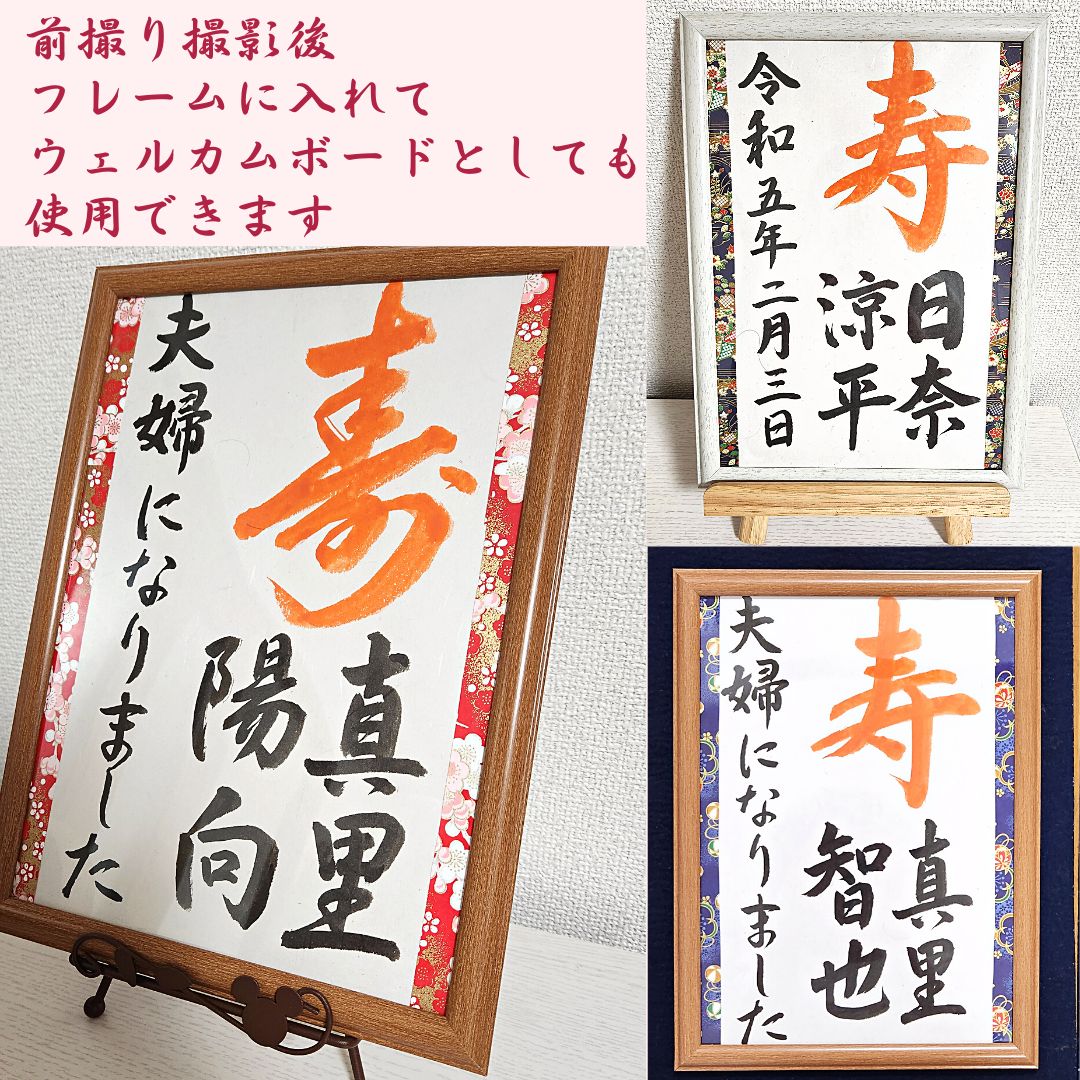 前撮り撮影後
フレームに入れて
ウェルカムボードとしても
使用できます
寿
日奈
涼平
令和五年二月三日
寿
真里
陽向
夫婦になりました
寿
真里
智也
夫婦になりました